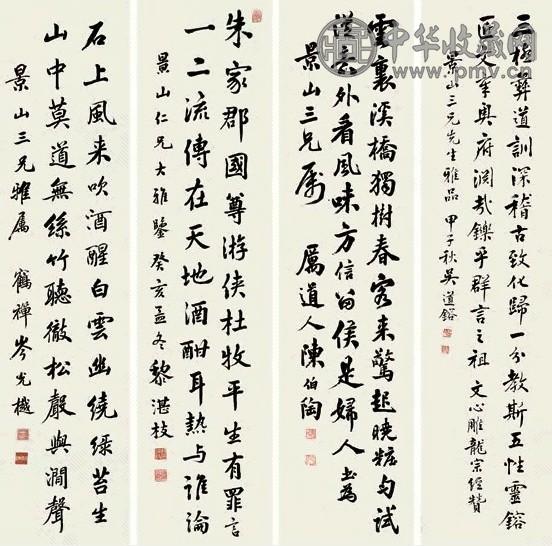 三極彝道訓深稽古致化歸一分教斯五性靈鎔
匠文章奧府淵哉鑠乎群言之祖 文心雕龍宗經贊
景山三兄先生雅品 甲子秋吳道鎔
雲裏溪橋獨樹春客来驚起曉粧勻試
從意外看風味方信留侯是婦人 書為
景山三兄屬 厲道人陳伯陶
朱家郡國尊游俠杜牧平生有罪言
一二流傳在天地酒酣耳熱与誰論
景山仁兄大雅鑒 癸亥孟冬黎湛枝
石上風来吹酒醒白雲幽繞綠苔生
山中莫道無絲竹聽徹松聲與澗聲
景山三兄雅屬 鶴禪岑光樾
中华收藏网
www.pmv.cn